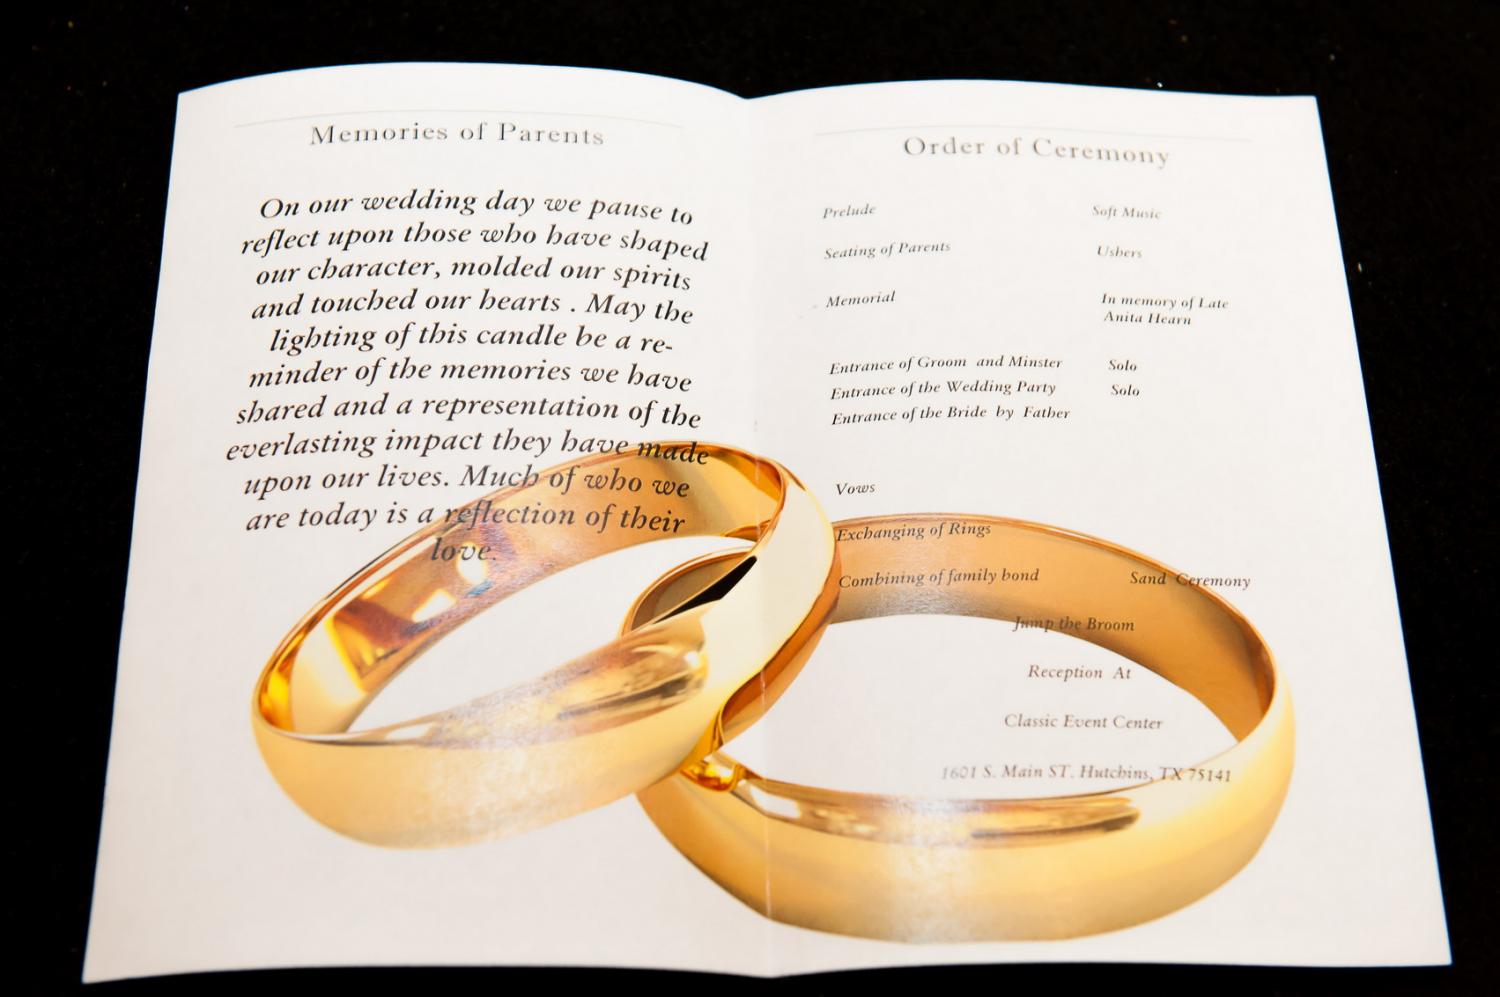 Memories of Parents
On our wedding day we pause to
reflect upon those who have shaped
our character, molded our spirits
and touched our hearts . May the
lighting of this candle be a re-
minder of the memories we have
shared and a representation of the
everlasting impact they have made
upon our lives. Much of who we
are today is a reflection of their
love.
Order of Ceremony
Prelude Soft Music
Seating of Parents Ushers
Memorial In memory of Late
Anita Hearn
Entrance of Groom and Minster Solo
Entrance of the Wedding Party Solo
Entrance of the Bride by Father
Vows
Exchanging of Rings
Combining of family bond Sand Ceremony
Jump the Broom
Reception At
Classic Event Center
1601 S. Main ST. Hutchins, TX 75141